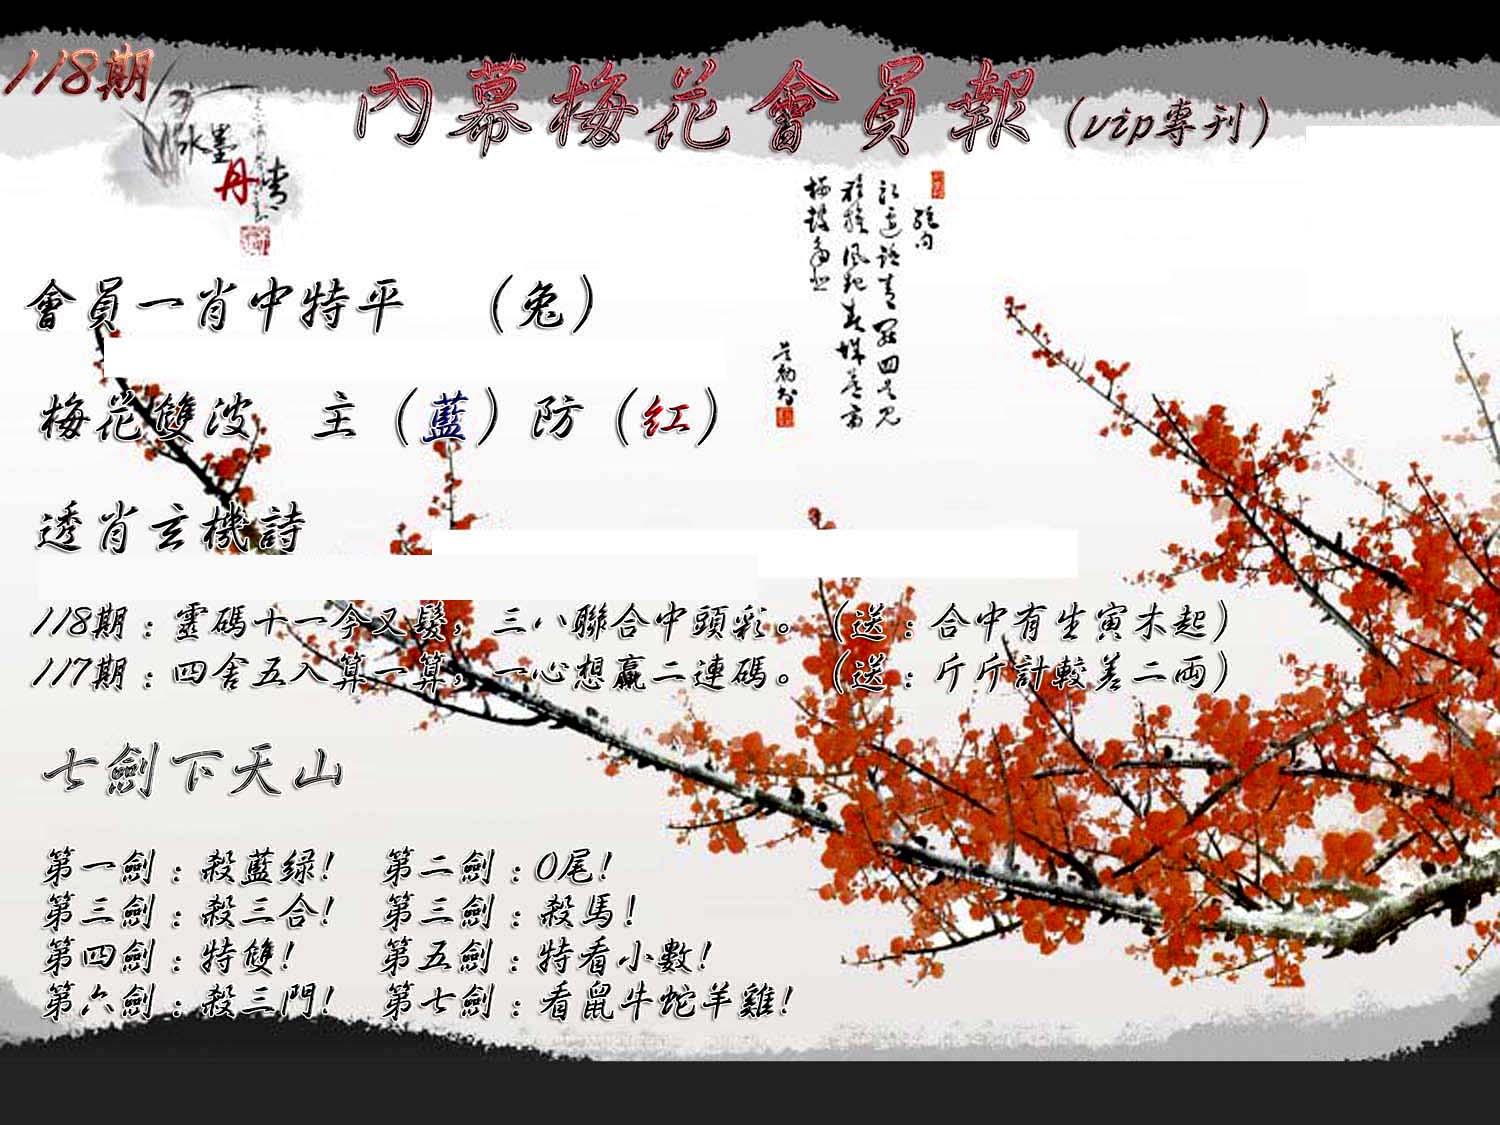 118期
內幕梅花會員報(vip專刊)
水墨
丹青
會員一肖中特平 （兔）
梅花雙波 主（藍）防（紅）
透肖玄機詩
118期：靈碼十一今又髮，三八聯合中頭彩。（送：合中有生寅木起）
117期：四舍五入算一算，一心想贏二連碼。（送：斤斤計較差二兩）
七劍下天山
第一劍：殺藍綠! 第二劍：0尾!
第三劍：殺三合! 第三劍：殺馬!
第四劍：特雙! 第五劍：特看小數!
第六劍：殺三門! 第七劍：看鼠牛蛇羊雞!